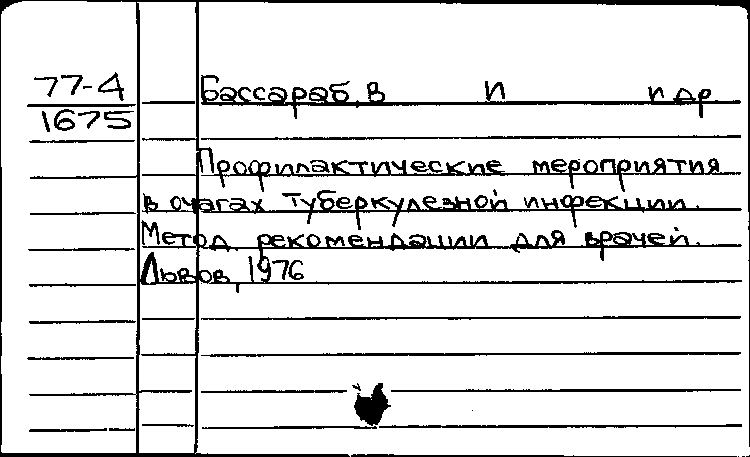 77-4
1675
Бассараб, В И и др.
Профилактические мероприятия
в очагах туберкулезной инфекции.
Метод. рекомендации для врачей.
Львов, 1976